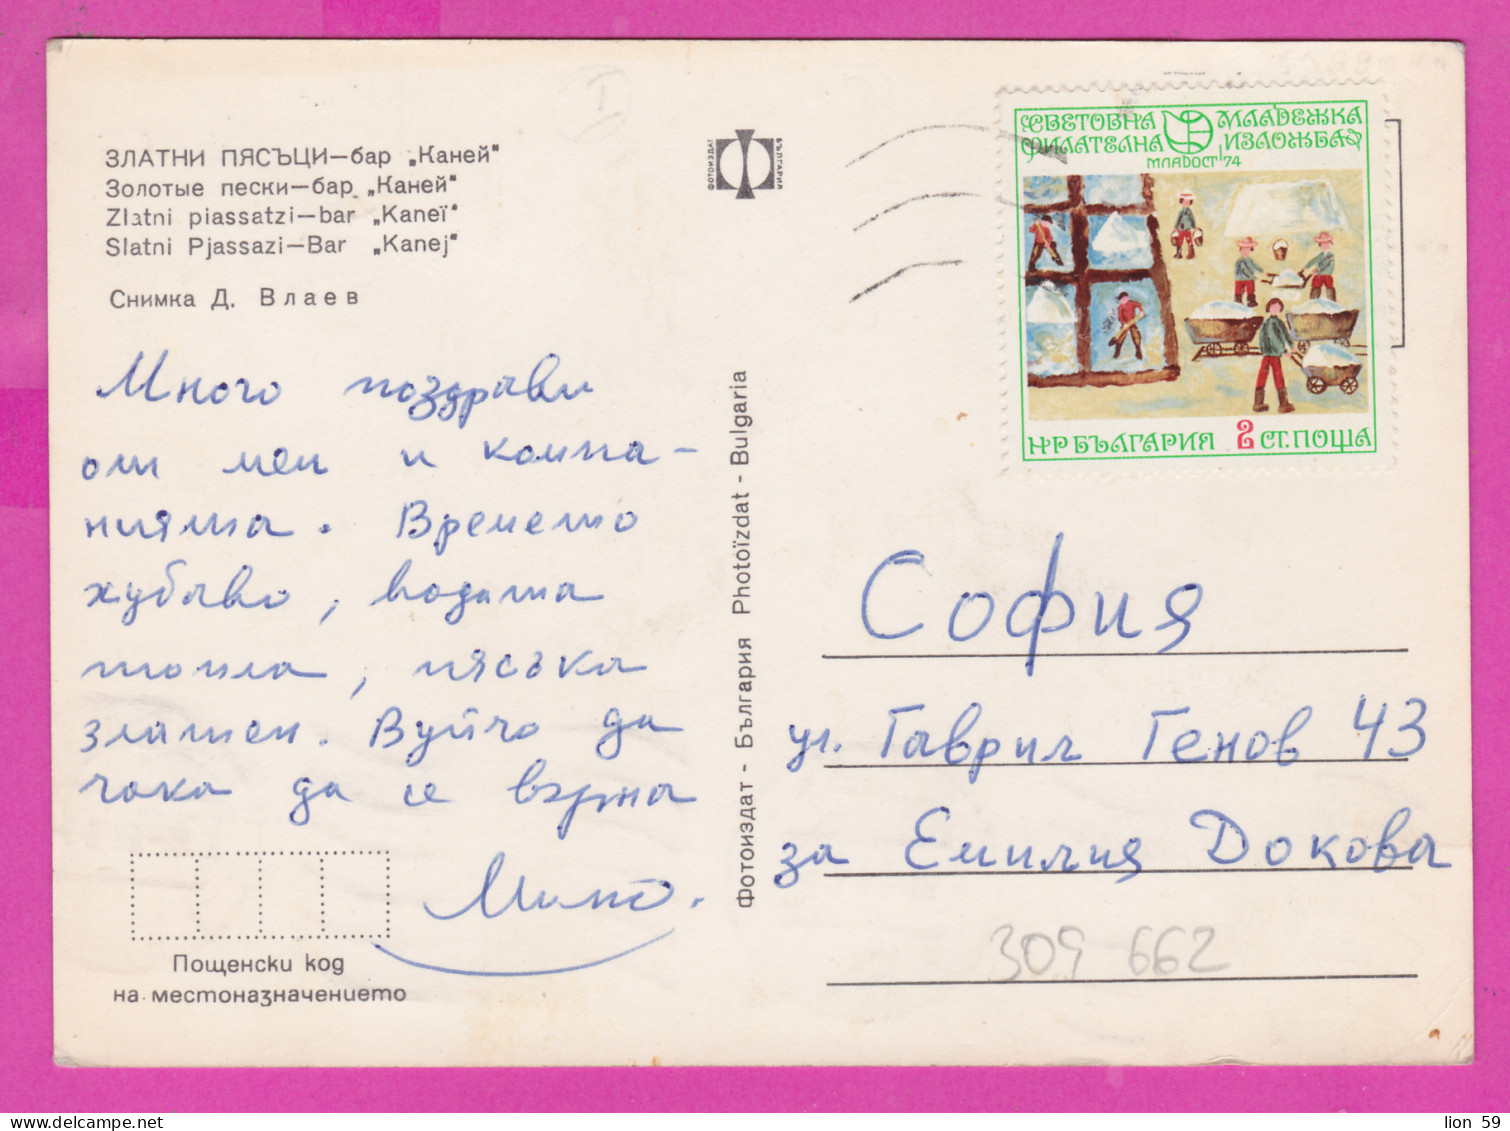 ЗЛАТНИ ПЯСЪЦИ—бар „Каней"
Золотые пески—бар „Каней"
Zlatni piassatzi—bar „Kaneï"
Slatni Pjassazi—Bar „Kanej"
Снимка Д. Влаев
Много поздрави
от мен и компа-
нията. Времето
хубаво, водата
топла, пясъка
златен. Вуйчо да
чака да се върна
Мито.
Пощенски код
на местоназначението
ФОТОИЗДАТ
БЪЛГАРИЯ
Фотоиздат - България Photoïzdat - Bulgaria
СВЕТОВНА МЛАДЕЖКА
ФИЛАТЕЛНА ИЗЛОЖБА
МЛАДОСТ'74
НР БЪЛГАРИЯ 2 СТ. ПОЩА
София
ул. Гаврил Генов 43
за Емилия Докова
309 662
lion 59